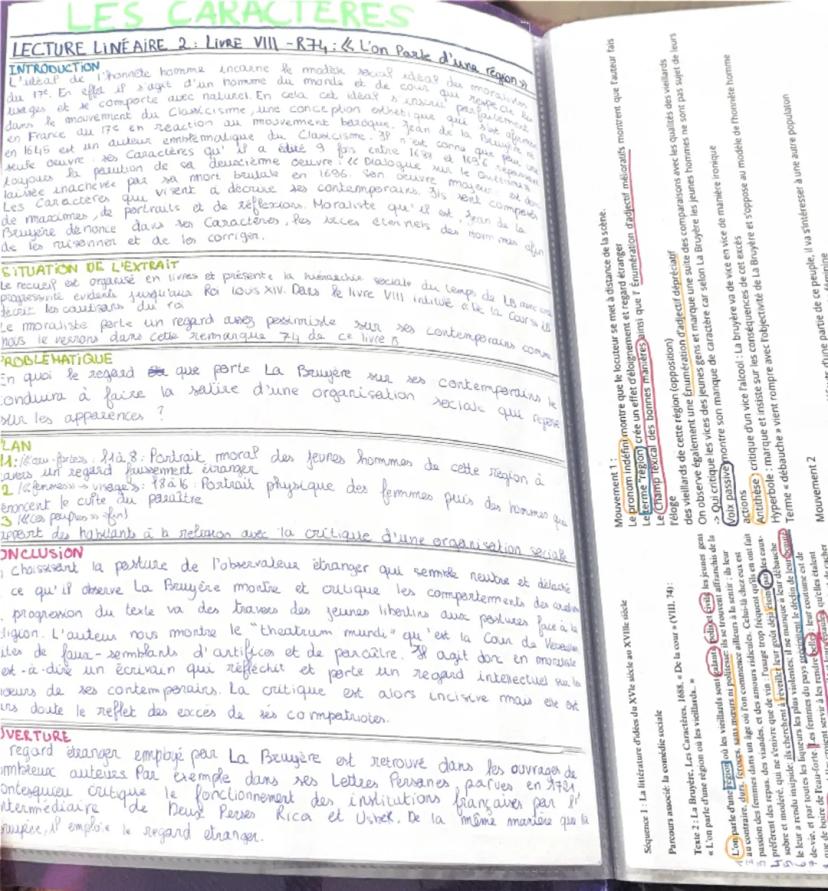 LES CARACTÈRES
LECTURE LINÉAIRE 2 : LIVRE VIII - R74 : « L'on Parle d'une région »
INTRODUCTION
L'idéal de l'honnête homme incarne le modèle social idéal du moraliste
du 17e. En effet il s'agit d'un homme du monde et de cour qui respecte les
usages et se comporte avec naturel. En cela cet idéal s'inscrit parfaitement
dans le mouvement du Classicisme, une conception esthétique qui s'est
en France du 17e en réaction au mouvement baroque. Jean de la Bruyère né
en 1645 est un auteur emblématique du Classicisme. Il n'est connu que pour une
seule oeuvre : ses Caractères qu'il a édité 9 fois entre 1688 et 1696
toujours la parution de sa deuxième oeuvre : « Dialogue sur le Quiétisme
laissée inachevée par sa mort brutale en 1696. Son oeuvre majeur est donc
Les Caractères qui visent à décrire ses contemporains. Ils sont composés
de maximes, de portraits et de réflexions. Moraliste qu'il est, Jean de la
Bruyère dénonce dans ses Caractères les vices éternels des hommes afin
de les raisonner et de les corriger.
SITUATION DE L'EXTRAIT
Le recueil est organisé en livres et présente la hiérarchie sociale du temps de LB avec une
progressivité évidente jusqu'au Roi Louis XIV. Dans le livre VIII intitulé « De la Cour » il
décrit les courtisans du roi
Le moraliste porte un regard assez pessimiste sur ses contemporains comme
nous le verrons dans cette remarque 74 de ce livre 8
PROBLÉMATIQUE
En quoi le regard que porte La Bruyère sur ses contemporains le
conduira à faire la satire d'une organisation sociale qui repose
sur les apparences ?
LAN
1 : l1 à 8 : Portrait moral des jeunes hommes de cette région à
avers un regard faussement étranger
2 l8 à 16 : Portrait physique des femmes puis des hommes qui
énoncent le culte du paraître
3 (« Ces peuples » fin)
rapport des habitants à la religion avec la critique d'une organisation sociale
ONCLUSION
choisissant la posture de l'observateur étranger qui semble neutre et détaché
ce qu'il observe La Bruyère montre et critique les comportements des
progression du texte va des travers des jeunes libertins aux postures face à la
ligion. L'auteur nous montre le "theatrum mundi" qu'est la Cour de Versailles
de faux-semblants d'artifices et de paraître. Il agit donc en moraliste
est-à-dire un écrivain qui réfléchit et porte un regard intellectuel sur les
moeurs de ses contemporains. La critique est alors incisive mais elle est
ns doute le reflet des excès de ses compatriotes.
OUVERTURE
regard étranger employé par La Bruyère est retrouvé dans les ouvrages de
ombreux auteurs. Par exemple dans ses Lettres Persanes parues en 1721
ontesquieu critique le fonctionnement des institutions françaises par l'
ntermédiaire de Deux Perses Rica et Usbek. De la même manière que La
Bruyère, il emploie le regard étranger.
Séquence 1 : La littérature d'idées du XVIe siècle au XVIIIe siècle
Parcours associé: la comédie sociale
Texte 2 : La Bruyère, Les Caractères, 1688, « De la cour » (VIII, 74) :
« L'on parle d'une région où les vieillards... »
L'on parle d'une région où les vieillards sont galants, polis et civils ; les jeunes gens
au contraire, durs, féroces, sans mœurs ni politesse : ils se trouvent affranchis de la
passion des femmes dans un âge où l'on commence ailleurs à la sentir ; ils leur
préfèrent des repas, des viandes, et des amours ridicules. Celui-là chez eux est
sobre et modéré, qui ne s'enivre que de vin : l'usage trop fréquent qu'ils en ont fait
le leur a rendu insipide ; ils cherchent à réveiller leur goût déjà éteint par les eaux-
de-vie, et par toutes les liqueurs les plus violentes ; il ne manque à leur débauche
que de boire de l'eau-forte. Les femmes du pays précipitent le déclin de leur beauté
Mouvement 1 :
Le pronom indéfini montre que le locuteur se met à distance de la scène.
Le terme "région" crée un effet d'éloignement et regard étranger
Le Champ lexical des bonnes manières ainsi que l' Énumération d'adjectif mélioratifs montrent que l'auteur fais
l'éloge
des vieillards de cette région (opposition)
On observe également une Énumération d'adjectif dépréciatif
et marque une suite des comparaisons avec les qualités des vieillards
-> Qui critique les vices des jeunes gens car selon La Bruyère les jeunes hommes ne sont pas sujet de leurs
actions
Voix passive montre son manque de caractère
Antithèse : critique d'un vice l'alcool : La bruyère va de vice en vice de manière ironique
Hyperbole : marque et insiste sur les conséquences de cet excès
Terme « débauche » vient rompre avec l'objectivité de La Bruyère et s'oppose au modèle de l'honnête homme
Mouvement 2